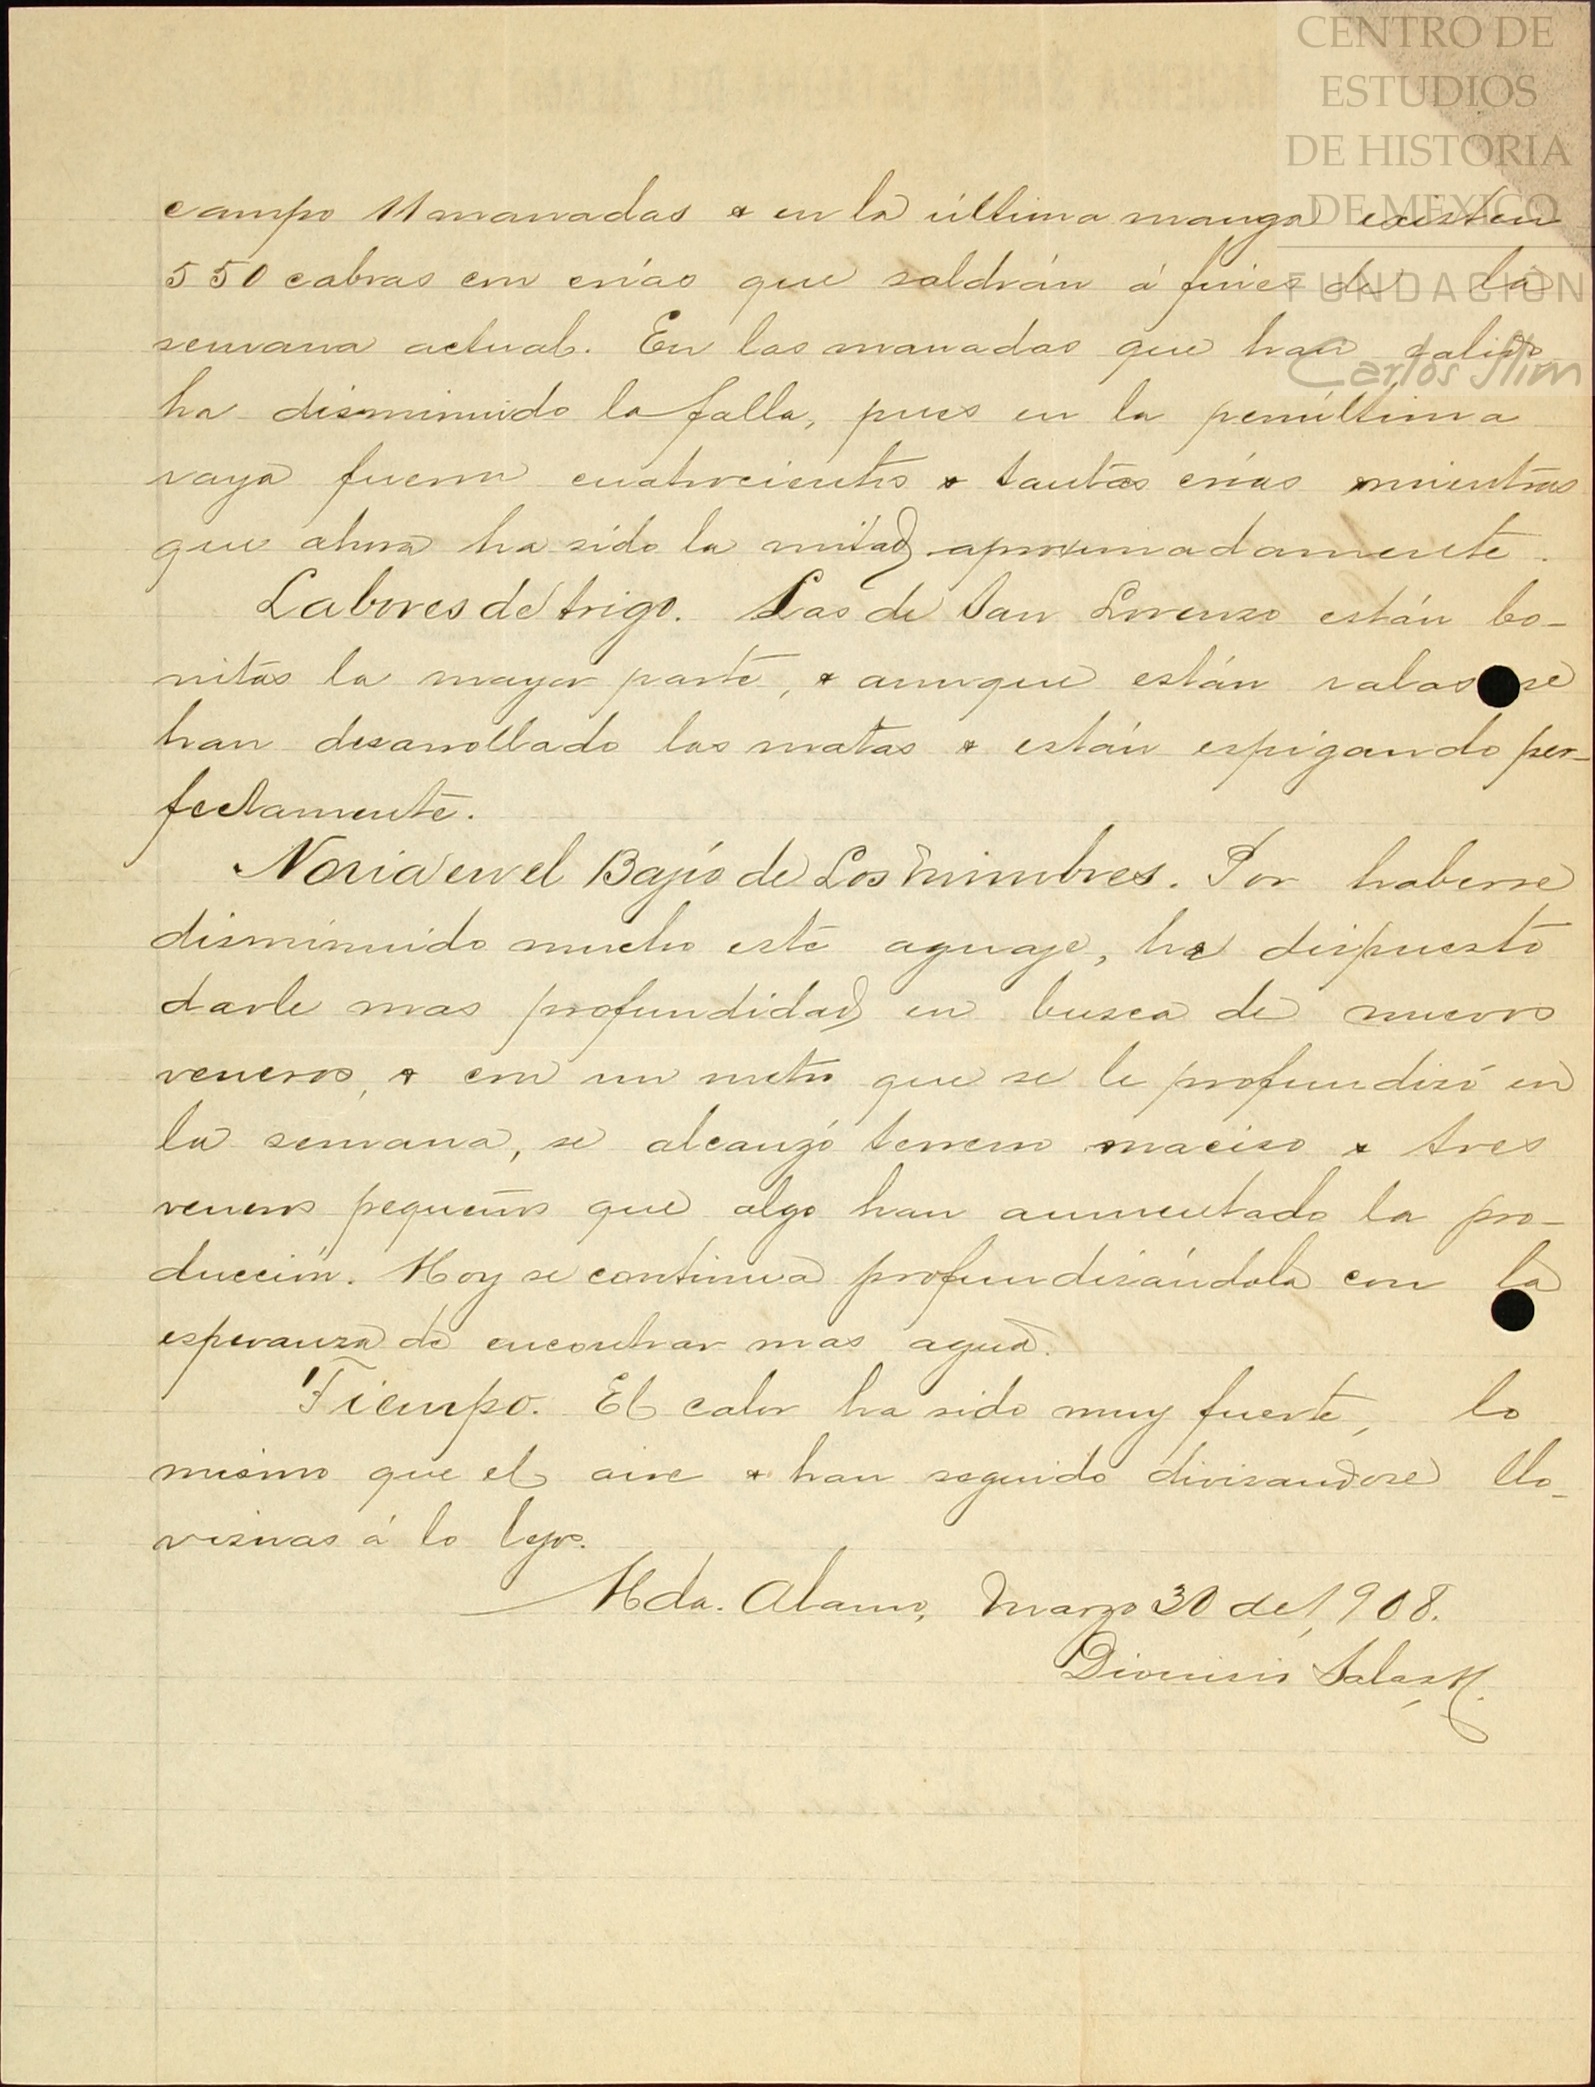 CENTRO DE
ESTUDIOS
DE HISTORIA
DE MEXICO
FUNDACIÓN
Carlos Slim
campo 11 manadas & en la última manga existen
550 cabras con crías que saldrán á fines de la
semana actual. En las manadas que han salido
ha disminuido la falla, pues en la penúltima
raya fueron cuatrocientos & tantas crías mientras
que ahora ha sido la mitad aproximadamente.
Labores de trigo. Las de San Lorenzo están bo-
nitas la mayor parte, & aunque están ralas se
han desarrollado las matas & están espigando per-
fectamente.
Noria en el Bajío de Los Mimbres. Por haberse
disminuido mucho este aguaje, he dispuesto
darle mas profundidad en busca de nuevos
veneros, & con un metro que se le profundisó en
la semana, se alcanzó terreno maciso & tres
veneros pequeños que algo han aumentado la pro-
ducción. Hoy se continua profundisándola con la
esperanza de encontrar mas agua.
Tiempo. El calor ha sido muy fuerte, lo
mismo que el aire & han seguido divisandose llo-
visnas á lo lejos.
Hda. Alamo, Marzo 30 de 1,908.
Dionisio Salas H.